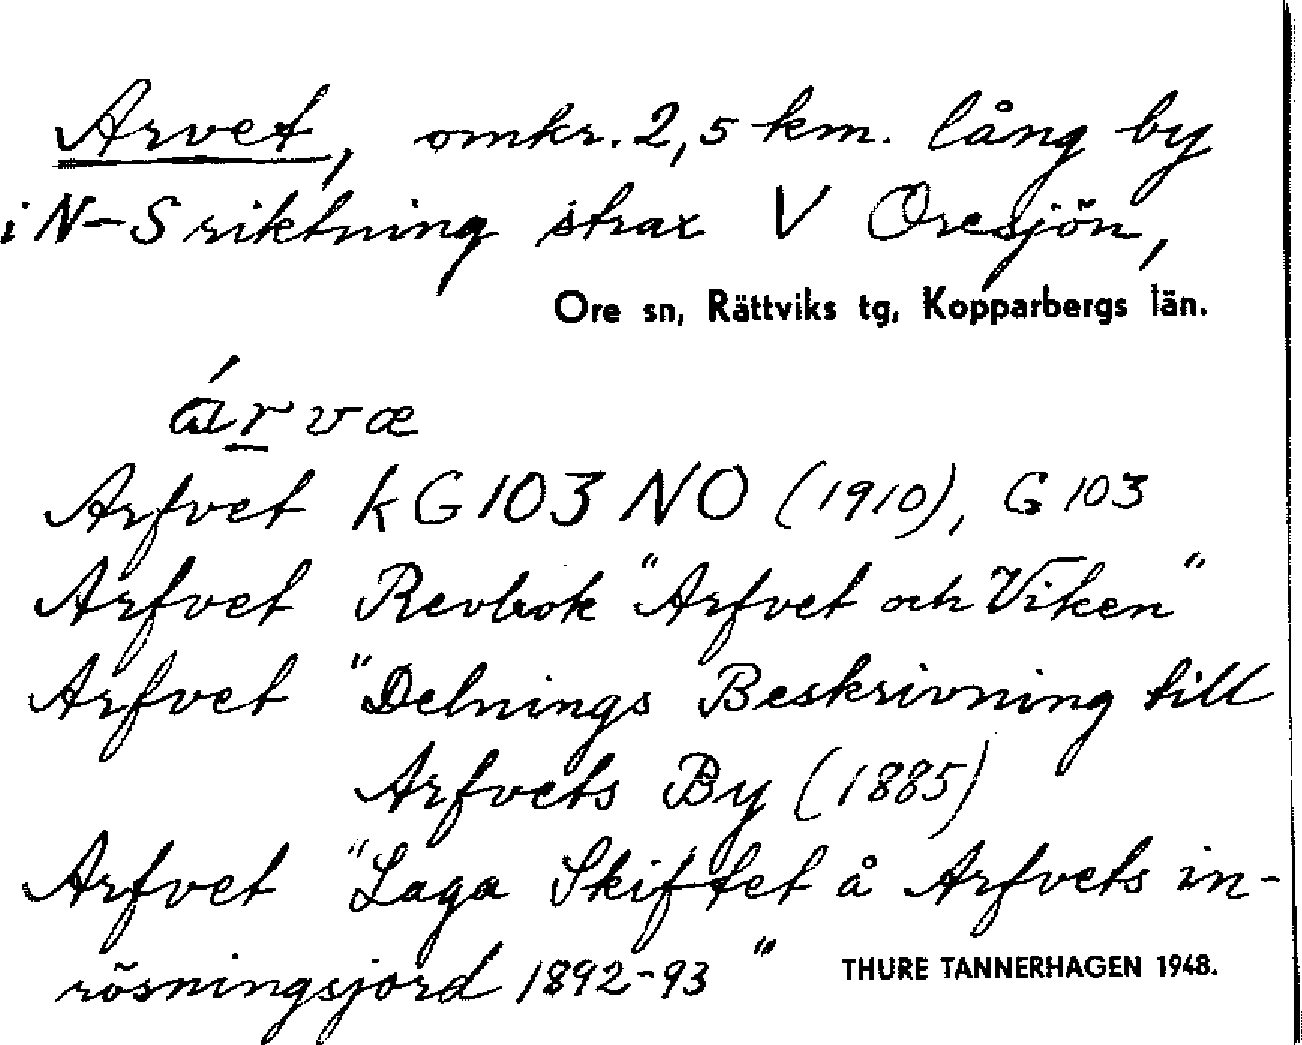 Arvet, omkr. 2,5 km. lång by
i N-S riktning strax V Oresjön,
Ore sn, Rättviks tg, Kopparbergs län.
árvæ
Arfvet k G 103 NO (1910), G 103
Arfvet Revbok "Arfvet och Viken"
Arfvet "Delnings Beskrivning till
Arfvets By (1885)
Arfvet "Laga Skiftet å Arfvets in-
rösningsjord 1892-93"
THURE TANNERHAGEN 1948.